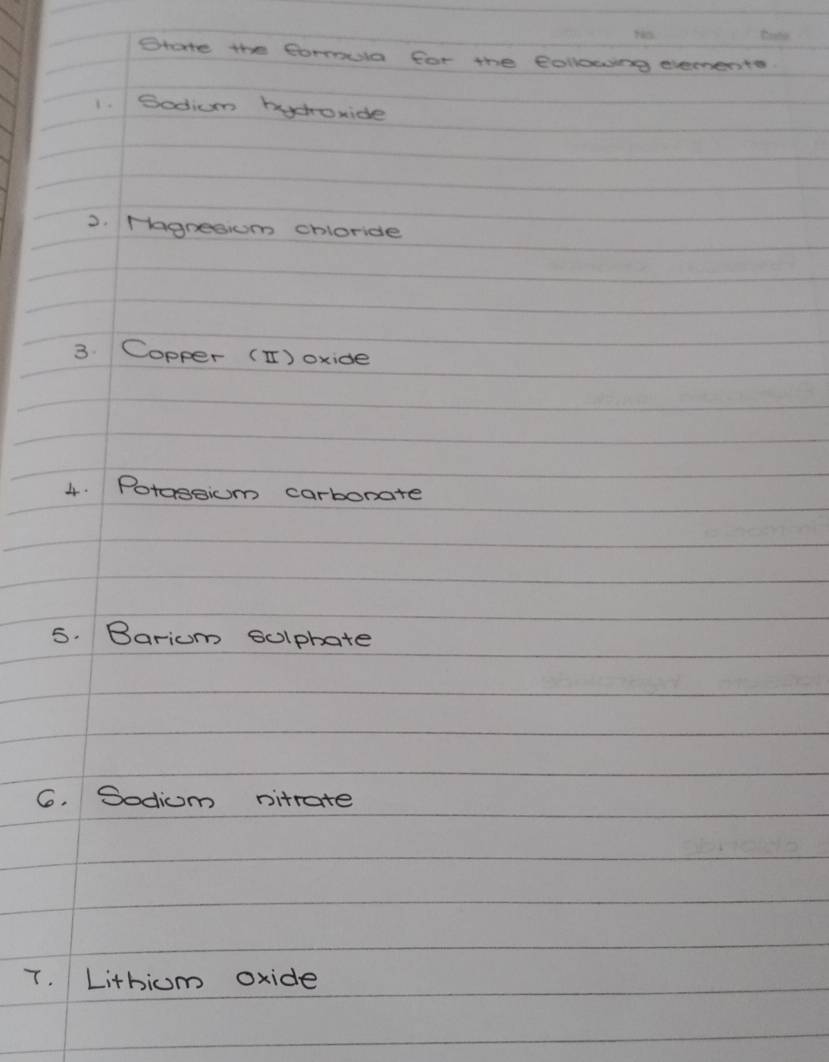 No Date
State the formula for the following elements.
1. Sodium hydroxide
2. Magnesium chloride
3. Copper (II) oxide
4. Potassium carbonate
5. Barium sulphate
6. Sodium nitrate
7. Lithium oxide